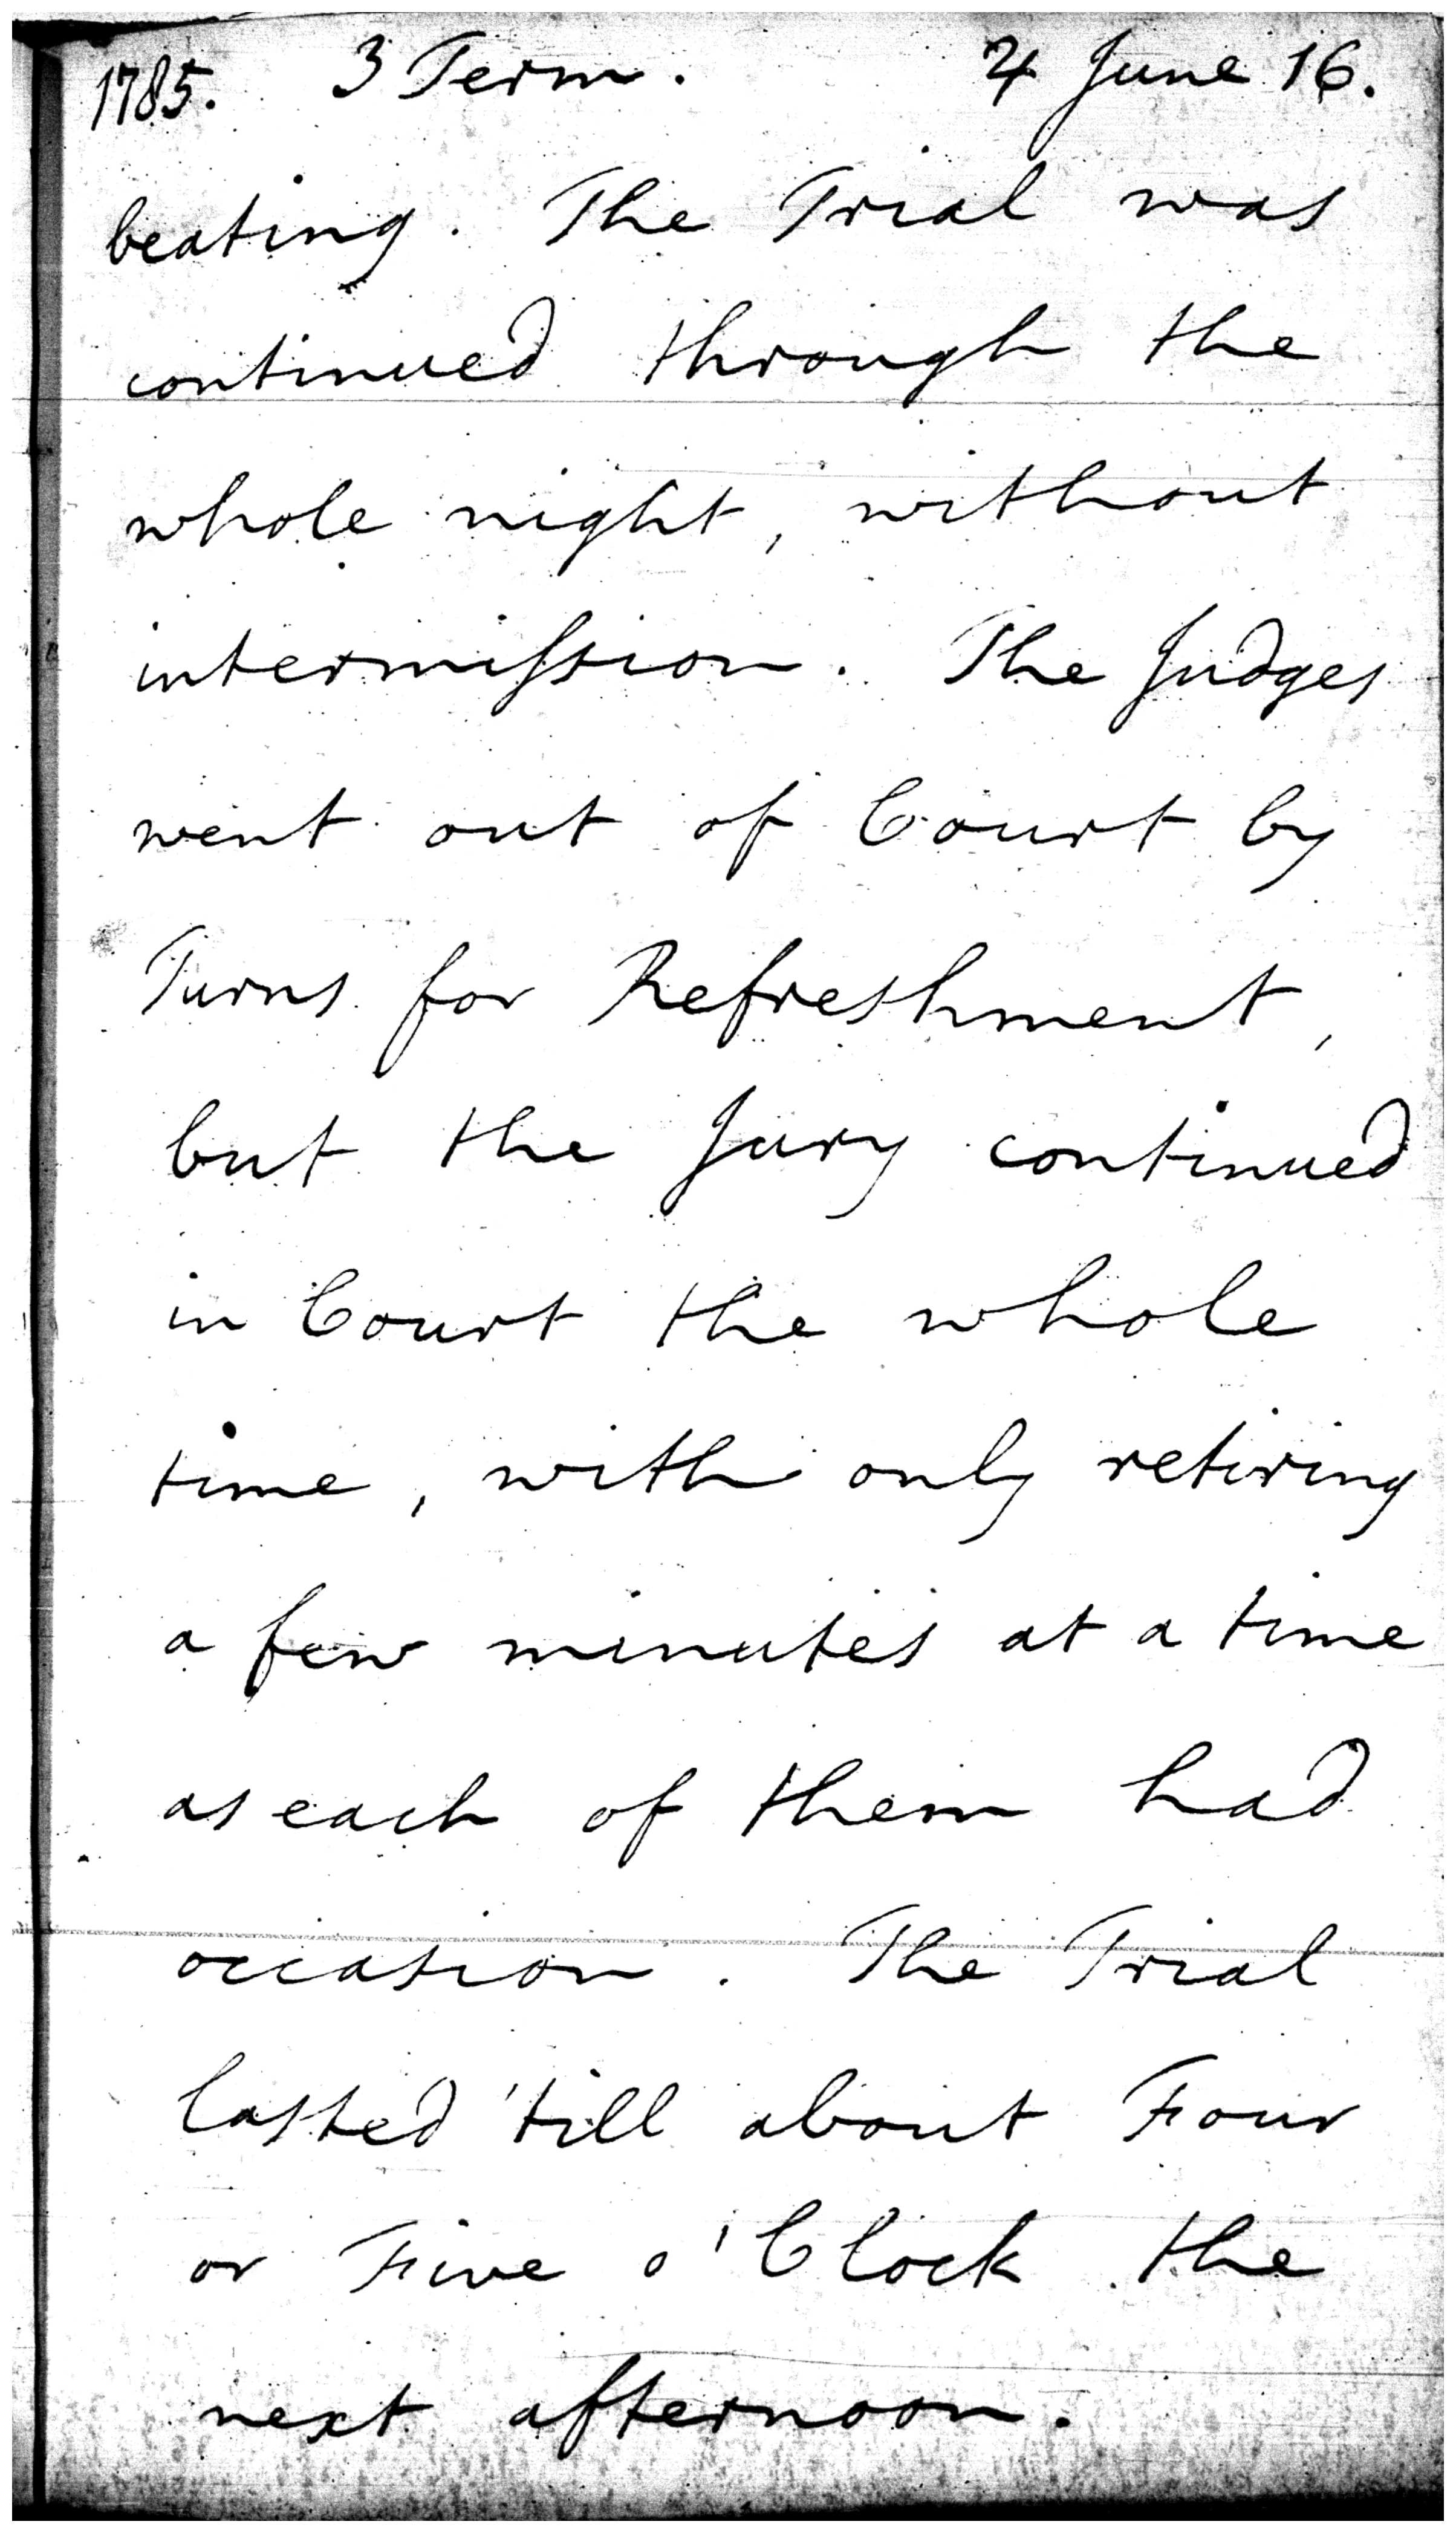 1785. 3 Term. 4 June 16.
beating. The Trial was
continued through the
whole night, without
intermiſsion. The Judges
went out of Court by
Turns for Refreshment,
but the Jury continued
in Court the whole
time, with only retiring
a few minutes at a time
as each of them had
occasion. The Trial
lasted 'till about Four
or Five o'Clock the
next afternoon.